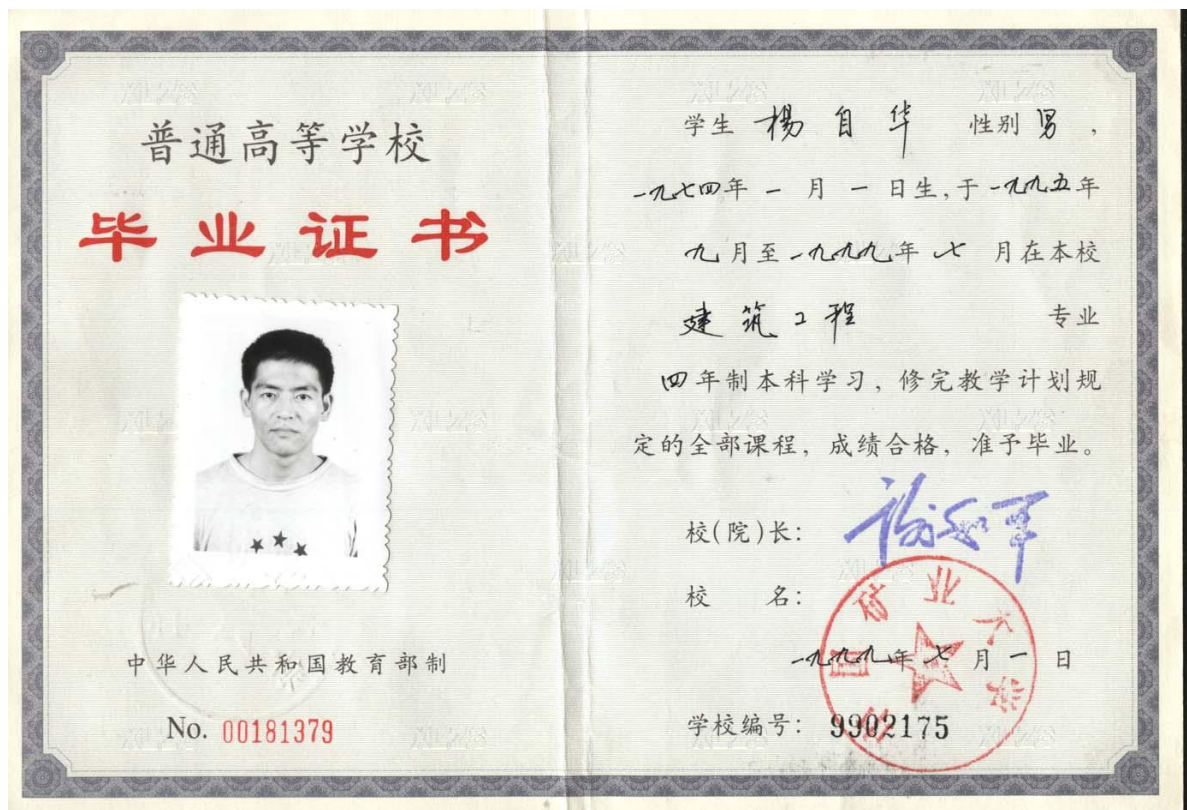 普通高等学校
毕业证书
中华人民共和国教育部制
No. 00181379
学生 楊自华 性别 男，
一九七四年 一 月 一 日生，于一九九五年
九月至一九九九年 七 月在本校
建筑工程 专业
四年制本科学习，修完教学计划规
定的全部课程，成绩合格，准予毕业。
校(院)长：
校 名：
中国矿业大学
一九九九年 七 月 一 日
学校编号： 9902175